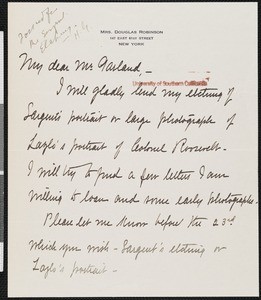 MRS. DOUGLAS ROBINSON
NEW YORK
My dear Mr. Garland,—
University of Southern California
I will gladly lend my etching of
Sargent's portrait or large photograph of
Lazlo's portrait of Colonel Roosevelt—
I will try to find a few letters I am
willing to loan and some early photographs.
Please let me know before the 23rd
which you wish—Sargent's etching or
Lazlo's portrait—